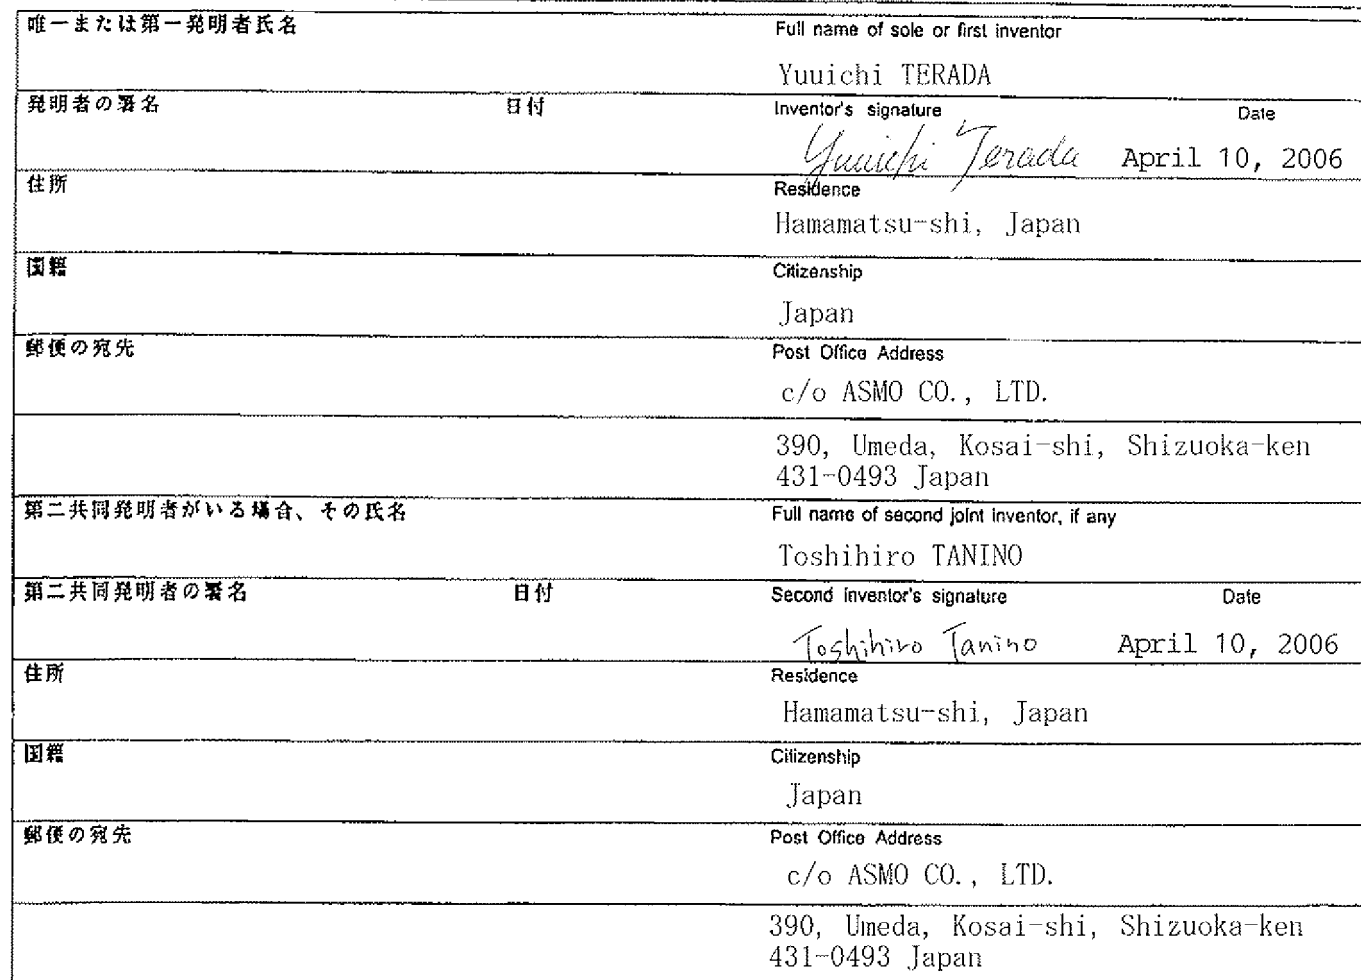 唯一または第一発明者氏名
Full name of sole or first inventor
Yuuichi TERADA
発明者の署名 日付
Inventor's signature Date
Yuuichi Terada April 10, 2006
住所
Residence
Hamamatsu-shi, Japan
国籍
Citizenship
Japan
郵便の宛先
Post Office Address
c/o ASMO CO., LTD.
390, Umeda, Kosai-shi, Shizuoka-ken
431-0493 Japan
第二共同発明者がいる場合、その氏名
Full name of second joint inventor, if any
Toshihiro TANINO
第二共同発明者の署名 日付
Second inventor's signature Date
Toshihiro Tanino April 10, 2006
住所
Residence
Hamamatsu-shi, Japan
国籍
Citizenship
Japan
郵便の宛先
Post Office Address
c/o ASMO CO., LTD.
390, Umeda, Kosai-shi, Shizuoka-ken
431-0493 Japan